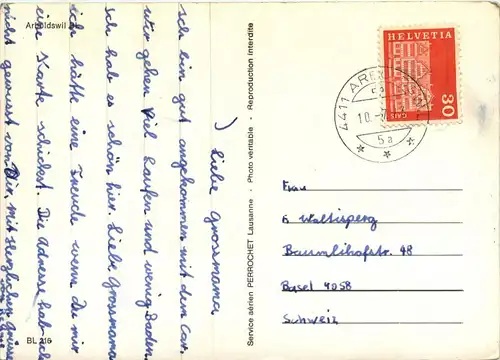 Arboldswil BL
Liebe Grossmama
ich bin gut angekommen mit dem Car.
wir gehen viel laufen und wenig Baden.
Ich hab es schön hier. Liebe Grossmama
ich hätte eine Freude wenn du mir
eine Karte schickst. Die Adresse hab ich
nicht gewusst von Dir, mit Herzlichen Grüsse
BL 216
Service aérien PERROCHET Lausanne - Photo véritable - Reproduction interdite
HELVETIA
30
4411
10.
5a
Frau
Waltisperg
Bäumlihofstr. 48
Basel 4058
Schweiz